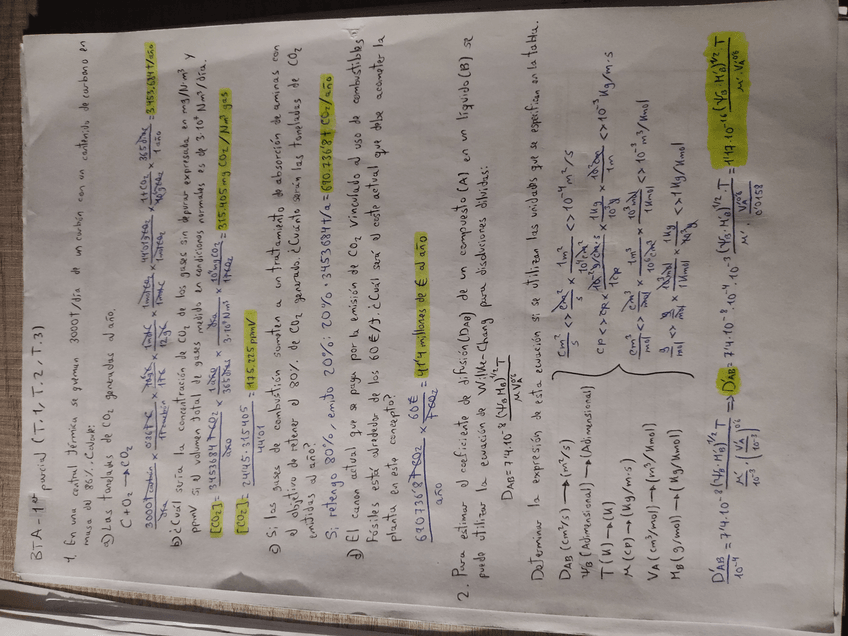 BTA - 1er parcial (T.1, T.2, T.3)
1. En una central térmica se queman 3000T/día de un carbón con un contenido de carbono en
masa del 86%. Calcule:
a) Las toneladas de CO2 generadas al año.
C + O2 → CO2
3000T carbón / día × 0'86T C / 1T carbón × 10^6 g C / 1T C × 1mol C / 12g C × 1mol CO2 / 1mol C × 44'01g CO2 / 1mol CO2 × 1T CO2 / 10^6 g CO2 × 365 días / 1 año = 3.453.684 t/año
b) ¿Cuál sería la concentración de CO2 de los gases sin depurar expresada en mg/N·m³ y
ppmV si el volumen total de gases medido en condiciones normales es de 3·10^7 Nm³/día.
[CO2] = 3453684 T CO2 / año × 1 año / 365 días × día / 3·10^7 Nm³ × 10^9 mg CO2 / 1T CO2 = 315.405 mg CO2/Nm³ gas
[CO2] = 24'45·315405 / 44'01 = 175.225 ppmv
c) Si los gases de combustión someten a un tratamiento de absorción de aminas con
el objetivo de retener el 80% de CO2 generado. ¿Cuánto serán las toneladas de CO2
emitidas al año?
Si retengo 80%, emito 20%: 20% · 3453684 t/a = 690.736'8 t CO2/año
d) El canon actual que se paga por la emisión de CO2 vinculado al uso de combustibles
fósiles está alrededor de los 60€/T. ¿Cuál será el coste actual que debe acometer la
planta en este concepto?
690736'8 T CO2 / año × 60€ / T CO2 = 41'4 millones de € al año
2. Para estimar el coeficiente de difusión (DAB) de un compuesto (A) en un líquido (B) se
puede utilizar la ecuación de Wilke-Chang para disoluciones diluidas:
DAB = 7'4·10^-8 (ΨB·MB)^1/2 T / μ VA^0'6
Determinar la expresión de esta ecuación si se utilizan las unidades que se especifican en la tabla.
DAB (cm²/s) → (m²/s) cm²/s <> cm²/s × 1m²/10^4cm² <> 10^-4 m²/s
ΨB (Adimensional) → (Adimensional)
T (K) → (K)
μ (cp) → (Kg/m·s) cp <> cp × 10^-2 g/cm·s / 1cp × 1Kg/10^3g × 10^2cm/1m <> 10^-3 Kg/m·s
VA (cm³/mol) → (m³/Kmol) cm³/mol <> cm³/mol × 1m³/10^6cm³ × 10^3mol/1Kmol <> 10^-3 m³/Kmol
MB (g/mol) → (Kg/Kmol) g/mol <> g/mol × 10^3mol/1Kmol × 1Kg/10^3g <> 1 Kg/Kmol
D'AB / 10^-4 = 7'4·10^-8 (ΨB·M'B)^1/2 T / μ'/10^-3 · (VA/10^-3)^0'6 ⇒ D'AB = 7'4·10^-8·10^-4·10^-3 (ΨB·M'B)^1/2·T / μ'· VA^0'6/0'0158 = 1'17·10^-16 (ΨB·M'B)^1/2 T / μ'·VA^0'6